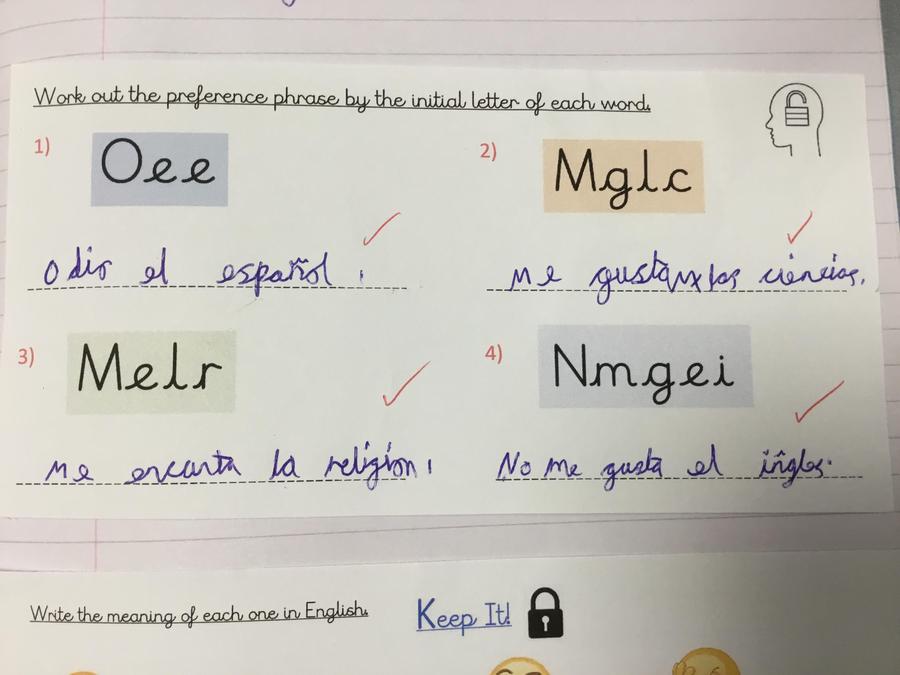 Work out the preference phrase by the initial letter of each word.
1)
Oee
2)
Mglc
odio el español.
me gustan las ciéncias.
3)
Melr
4)
Nmgei
me encanta la religión.
No me gusta el iñgles.
Write the meaning of each one in English.
Keep It!